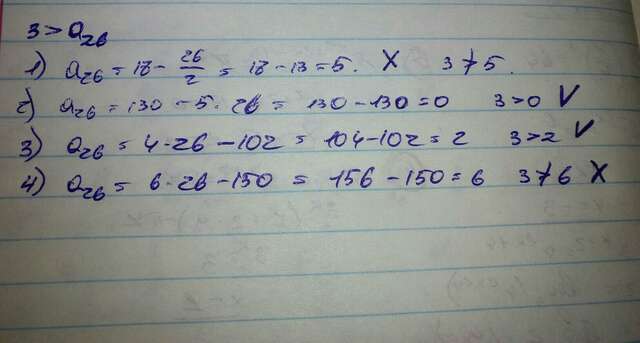 3 > a₂₆
1) a₂₆ = 18 - 26/2 = 18 - 13 = 5. X 3 ≯ 5.
2) a₂₆ = 130 - 5 · 26 = 130 - 130 = 0 3 > 0 V
3) a₂₆ = 4 · 26 - 102 = 104 - 102 = 2 3 > 2 V
4) a₂₆ = 6 · 26 - 150 = 156 - 150 = 6 3 ≯ 6 X